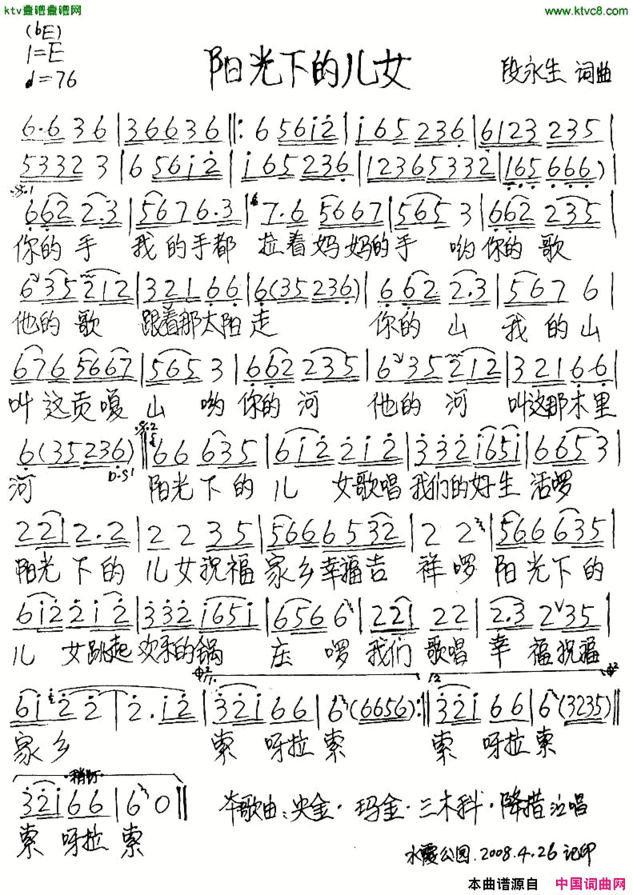 ktv查谱查谱网 www.ktvc8.com
(bE)
1=E
♩=76
阳光下的儿女
段永生 词曲
6·6 3 6 | 3 6 6 3 6 ‖: 6 5 6 i 2 | i 6 5 2 3 6 | 6 1 2 3 2 3 5 |
5 3 3 2 3 | 6 5 6 i 2 | i 6 5 2 3 6 | 1 2 3 6 5 3 3 2 | 1 6 5 6 6 6 )
6 6 2 2·3 | 5 6 7 6·3 | 7·6 5 6 6 7 | 5 6 5 3 | 6 6 2 2 3 5 |
你的手 我的手都 拉着妈妈的手 哟你的歌
6 3 5 2 1 2 | 3 2 1 6 6 | 6 (3 5 2 3 6) | 6 6 2 2·3 | 5 6 7 6 |
他的歌 跟着那太阳走 你的山 我的山
6 7 6 5 6 6 7 | 5 6 5 3 | 6 6 2 2 3 5 | 6 3 5 2 1 2 | 3 2 1 6 6 |
叫这贡嘎山 哟你的河 他的河 叫这那木里
6 (3 5 2 3 6) ‖ 6 6 6 3 5 | 6 i 2 2 i 2 | 3 3 2 i 6 5 i | 6 6 5 3 |
D.S1
河 阳光下的儿 女歌唱我们的好生活啰
2 2 1 2·2 | 2 2 3 5 | 5 6 6 6 6 5 3 2 | 2 2 | 5 6 6 6 3 5 |
阳光下的儿女祝福家乡幸福吉祥啰阳光下的
6 i 2 2 i 2 | 3 3 2 i 6 5 i | 6 5 6 6 | 2 2 1 2 2 | 2·3 2 3 5 |
儿 女跳起欢乐的锅庄啰我们歌唱幸福祝福
6 i 2 2 | 2·i 2 | 3 2 i 6 6 | 6 (6 6 5 6) :‖ 3 2 i 6 6 | 6 (3 2 3 5) ‖
家乡 索呀拉索 索呀拉索
3 2 i 6 6 | 6 0 ‖
索呀拉索
本歌由:央金·玛金·三木科·降措 演唱
水霞公园.2008.4.26 记印
本曲谱源自 中国词曲网